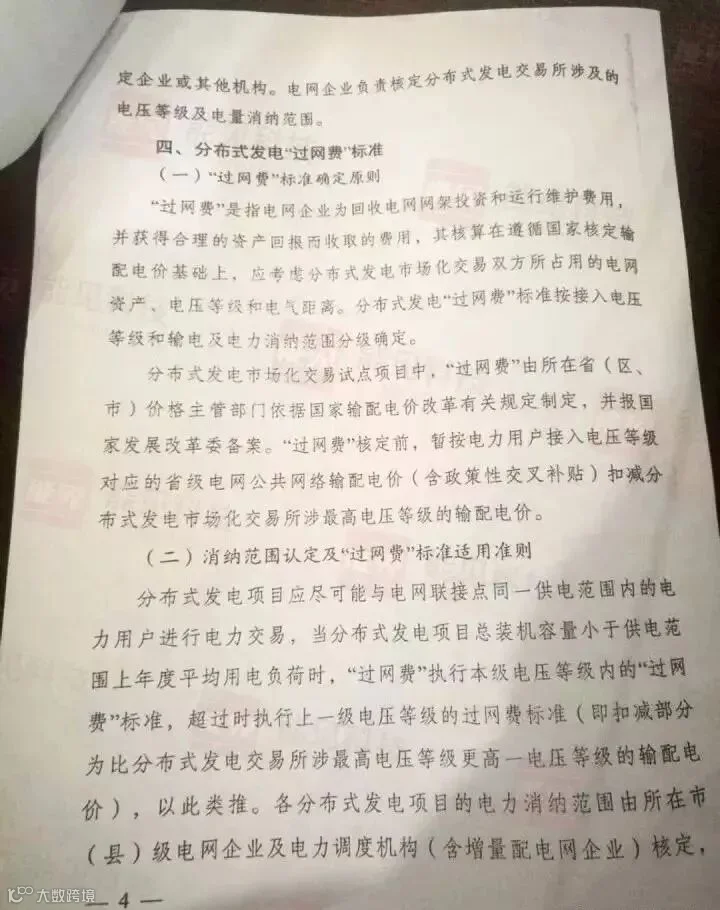 定企业或其他机构。电网企业负责核定分布式发电交易所涉及的
电压等级及电量消纳范围。
四、分布式发电“过网费”标准
（一）“过网费”标准确定原则
“过网费”是指电网企业为回收电网网架投资和运行维护费用，
并获得合理的资产回报而收取的费用，其核算在遵循国家核定输
配电价基础上，应考虑分布式发电市场化交易双方所占用的电网
资产、电压等级和电气距离。分布式发电“过网费”标准按接入电压
等级和输电及电力消纳范围分级确定。
分布式发电市场化交易试点项目中，“过网费”由所在省（区、
市）价格主管部门依据国家输配电价改革有关规定制定，并报国
家发展改革委备案。“过网费”核定前，暂按电力用户接入电压等级
对应的省级电网公共网络输配电价（含政策性交叉补贴）扣减分
布式发电市场化交易所涉最高电压等级的输配电价。
（二）消纳范围认定及“过网费”标准适用准则
分布式发电项目应尽可能与电网联接点同一供电范围内的电
力用户进行电力交易，当分布式发电项目总装机容量小于供电范
围上年度平均用电负荷时，“过网费”执行本级电压等级内的“过网
费”标准，超过时执行上一级电压等级的过网费标准（即扣减部分
为比分布式发电交易所涉最高电压等级更高一电压等级的输配电
价），以此类推。各分布式发电项目的电力消纳范围由所在市
（县）级电网企业及电力调度机构（含增量配电网企业）核定，
— 4 —
大数跨境